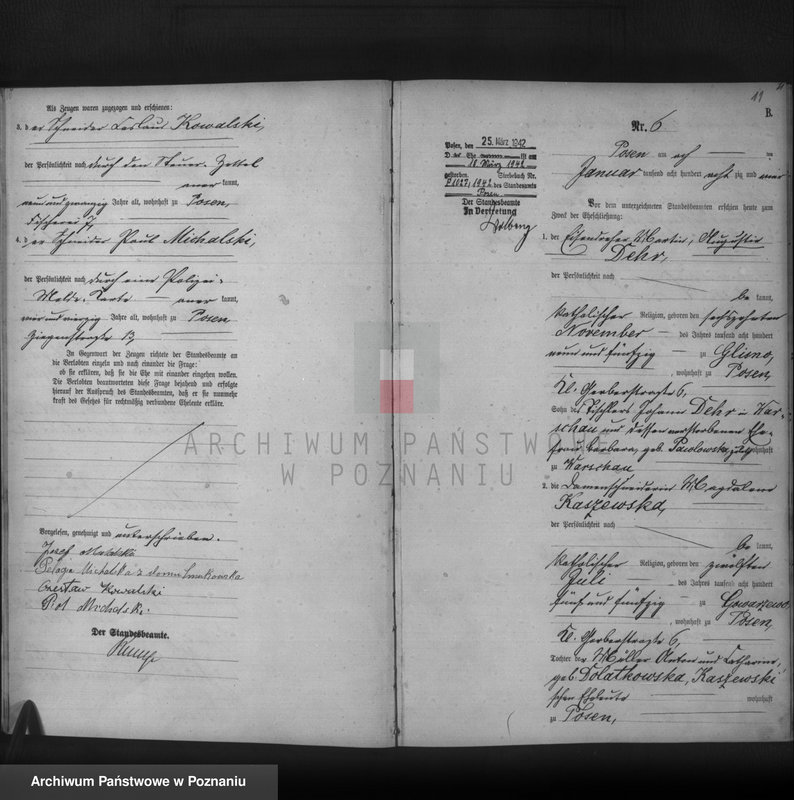 Als Zeugen waren zugezogen und erschienen:
3. der Schneider Kowalski,
der Persönlichkeit nach durch den Steuer-Zettel
kannt,
neun und zwanzig Jahre alt, wohnhaft zu Posen,
Fischerei 7,
4. der Schneider Paul Michalski,
der Persönlichkeit nach durch eine Polizei-
Melde-Karte kannt,
vierzig Jahre alt, wohnhaft zu Posen
13,
In Gegenwart der Zeugen richtete der Standesbeamte an
die Verlobten einzeln und nach einander die Frage:
ob sie erklären, daß sie die Ehe mit einander eingehen wollen.
Die Verlobten beantworteten diese Frage bejahend und erfolgte
hierauf der Ausspruch des Standesbeamten, daß er sie nunmehr
kraft des Gesetzes für rechtmäßig verbundene Eheleute erkläre.
Vorgelesen, genehmigt und unterschrieben.
Józef
Pelagia Michalska z domu
Czesław Kowalski
Michalski.
Der Standesbeamte.
11
B.
Nr. 6
Posen, den 25. März 1942
ist am
18. März 1942
gestorben. Sterbebuch Nr.
1942 des Standesamts
Posen
Der Standesbeamte
In Vertretung
Posen am
Januar tausend acht hundert acht zig und
Vor dem unterzeichneten Standesbeamten erschien heute zum
Zweck der Eheschließung:
1. der Eisendreher Martin, Augustin
Dehr,
der Persönlichkeit nach
be kannt,
katholischer Religion, geboren den sechszehnten
November des Jahres tausend acht hundert
neun und fünfzig zu Glinno,
, wohnhaft zu Posen,
Kl. Gerberstraße 6,
Sohn des Tischlers Johann Dehr War-
schau und dessen verstorbenen Ehe-
frau Barbara, geb. Pawlowska, wohnhaft
zu Warschau
2. die Damenschneiderin Magdalena
Kaszewska,
der Persönlichkeit nach
be kannt,
katholischer Religion, geboren den zwölften
Juli des Jahres tausend acht hundert
fünf und fünfzig zu Gowarzewo
, wohnhaft zu Posen,
Kl. Gerberstraße 6,
Tochter der Müller Anton und Catharina,
geb. Dolatkowska, Kaszewski'
schen Eheleute wohnhaft
zu Posen,
ARCHIWUM PAŃSTWOWE
W POZNANIU
Archiwum Państwowe w Poznaniu